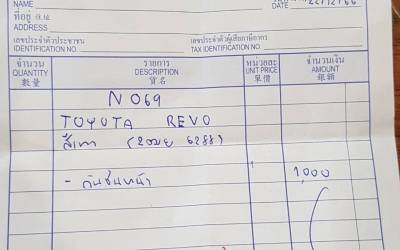 NAME DATE 22/12/66
ที่อยู่
ADDRESS
เลขประจำตัวประชาชน เลขประจำตัวผู้เสียภาษีอากร
IDENTIFICATION NO. TAX IDENTIFICATION NO.
จำนวน รายการ หน่วยละ จำนวนเงิน
QUANTITY DESCRIPTION UNIT PRICE AMOUNT
數量 貨名 單價 銀額
N069
TOYOTA REVO
สีเทา (2ฒย 6288)
- กันชนหน้า 1,000